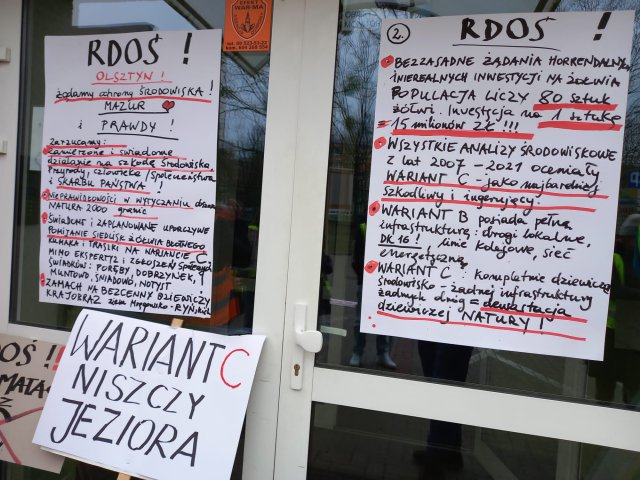 RDOŚ !
OLSZTYN !
Żądamy ochrony ŚRODOWISKA !
MAZUR
i PRAWDY !
Zarzucamy:
Zamierzone i świadome
działanie na szkodę Środowiska
Przyrody, człowieka/społeczeństwa
i SKARBU PAŃSTWA !
NIEPRAWIDŁOWOŚCI W WYTYCZANIU
NATURA 2000 granic
ŚWIADOME I ZAPLANOWANE UPORCZYWE
POMIJANIE SIEDLISK ŻÓŁWIA BŁOTNEGO
KUMAKA I TRASZKI NA WARIANCIE C
MIMO EKSPERTYZ I ZGŁOSZEŃ
ŚWIADKÓW: PORĘBY, DOBRZYNEK,
MUNTOWO, ŚNIADOWO, NOTYST
ZAMACH NA BEZCENNY DZIEWICZY
KRAJOBRAZ
EFEKT
WAR-MA
RDOŚ !
2.
BEZZASADNE ŻĄDANIA HORRENDALNYCH
I NIEREALNYCH INWESTYCJI NA ŻÓŁWIA
POPULACJA LICZY 80 sztuk
żółwi. Inwestycja na 1 sztukę
= 15 milionów zł !!!
WSZYSTKIE ANALIZY ŚRODOWISKOWE
z lat 2007 - 2021 oceniały
WARIANT C - jako najbardziej
szkodliwy i ingerujący.
WARIANT B posiada pełną
infrastrukturę: drogi lokalne,
DK 16 ! linie kolejowe, sieć
energetyczną
WARIANT C : kompletnie dziewicze
środowisko - żadnej infrastruktury
żadnych dróg = dewastacja
dziewiczej NATURY !
WARIANT C
NISZCZY
JEZIORA
DOŚ !!
MATA